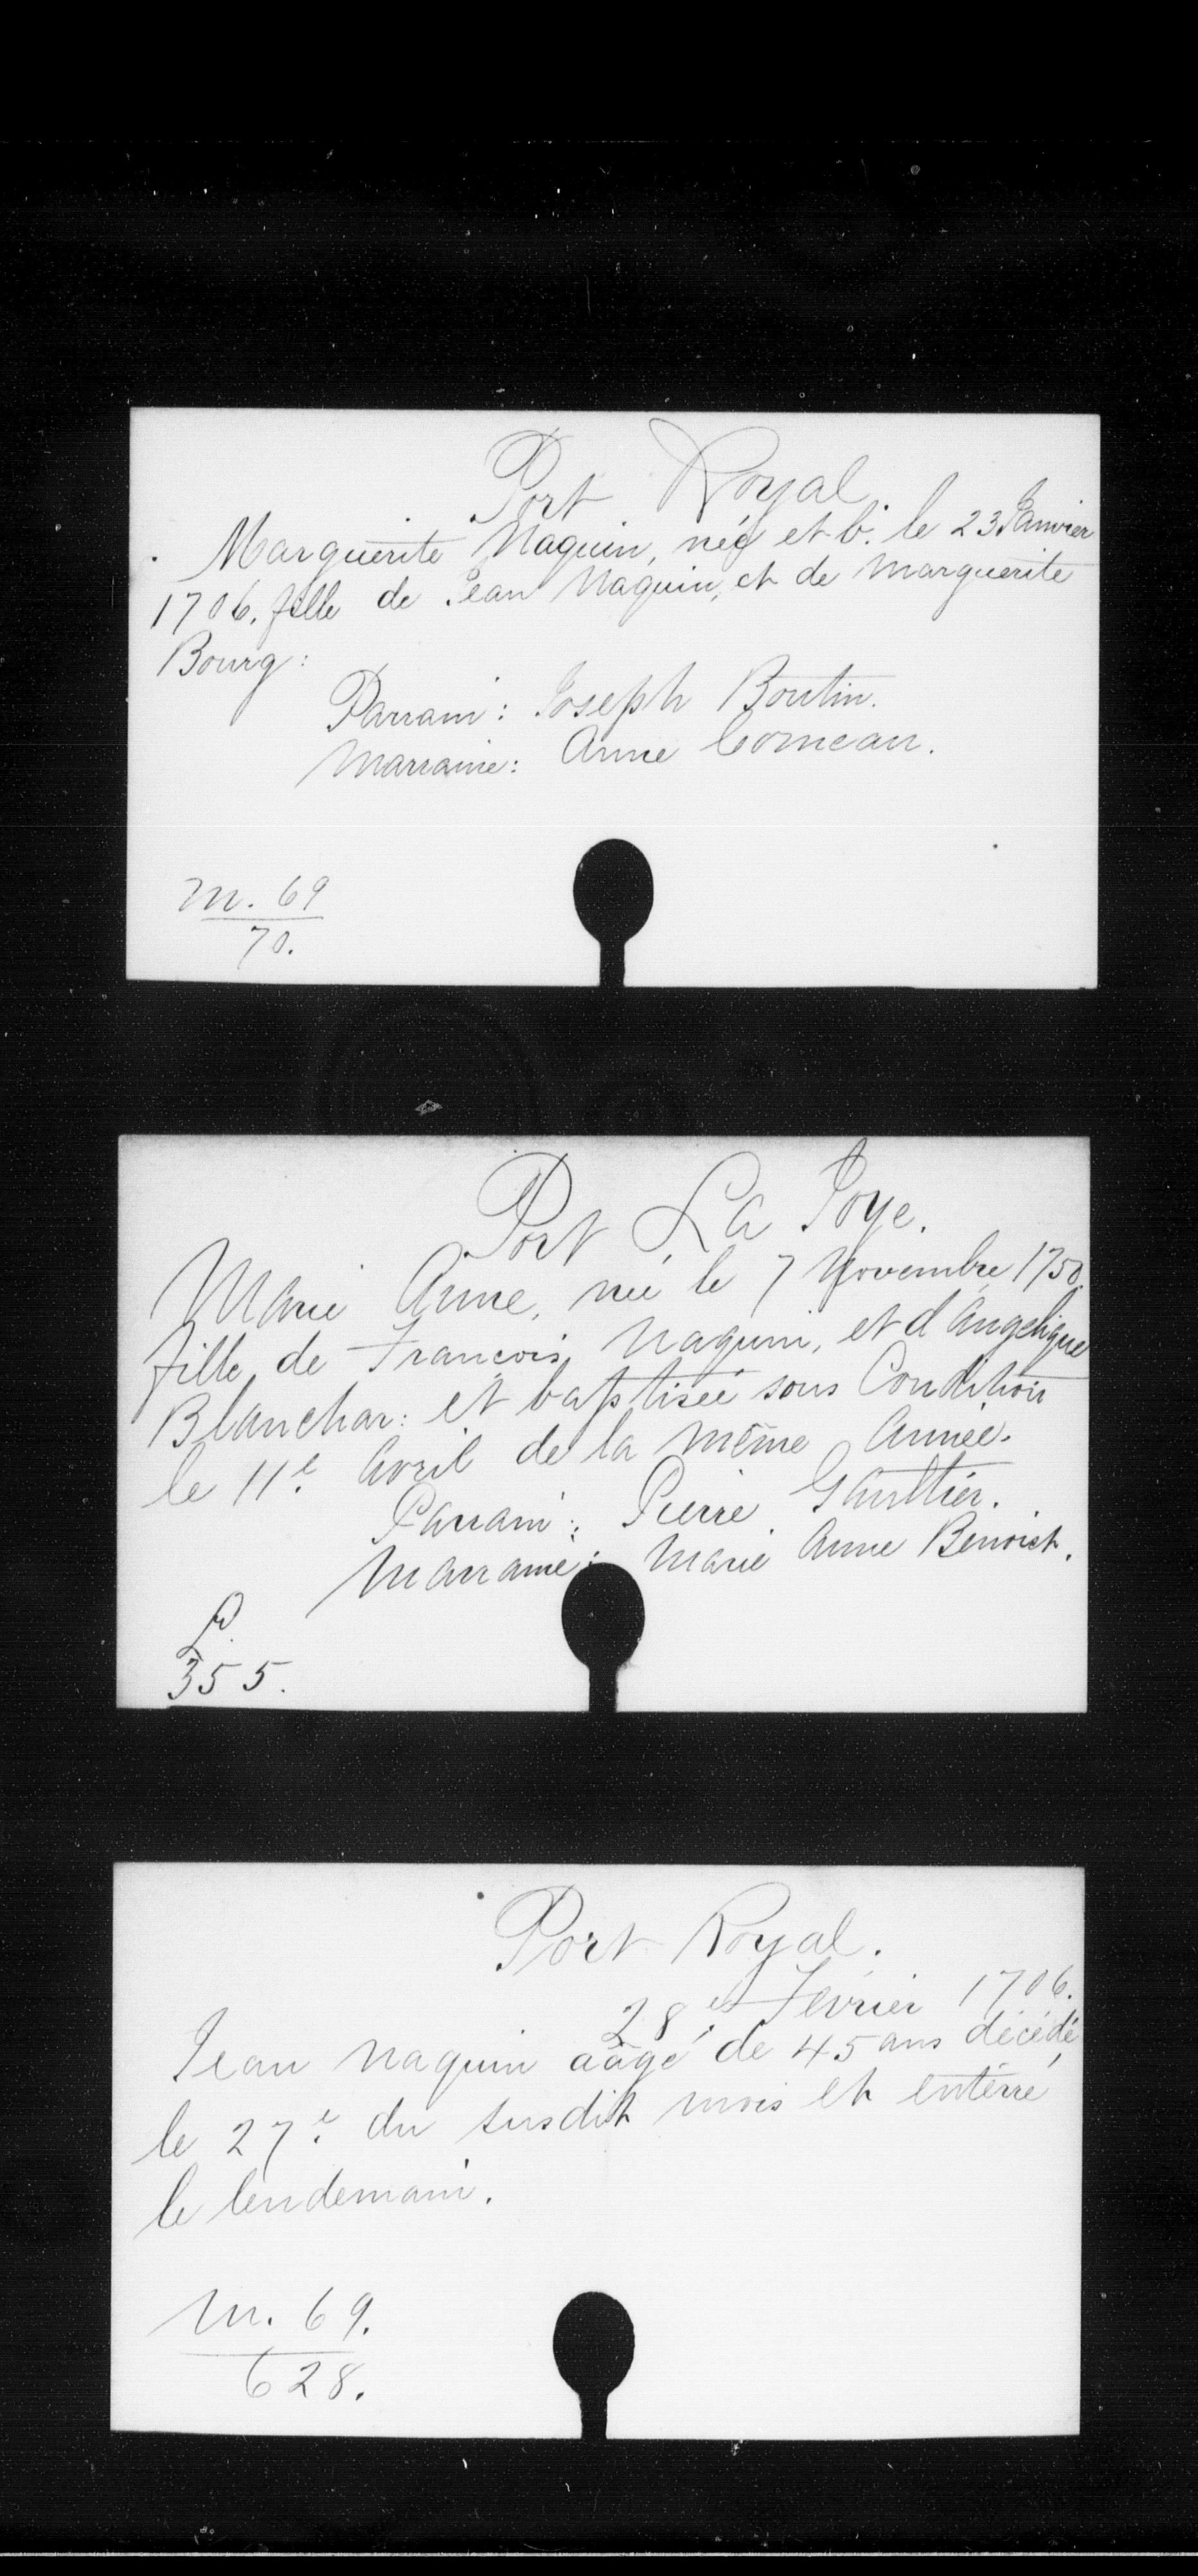 Port Royal.
Marguerite Naquin, née et b. le 23 Janvier
1706. fille de Jean Naquin, et de Marguerite
Bourg:
Parrain: Joseph Boutin.
Marraine: Anne Comeau.
M. 69
70.
Port La Joye.
Marie Anne, née le 7 Novembre 1750.
fille de François Naquin, et d'Angelique
Blanchar: et baptisée sous Condition
le 11e avril de la même année.
Parrain: Pierre Gaulthier.
Marraine: Marie Anne Benoist.
P.
355.
Port Royal.
28e Février 1706.
Jean Naquin aâgé de 45 ans décédé
le 27e du susdit mois et enterré
le lendemain.
M. 69.
628.